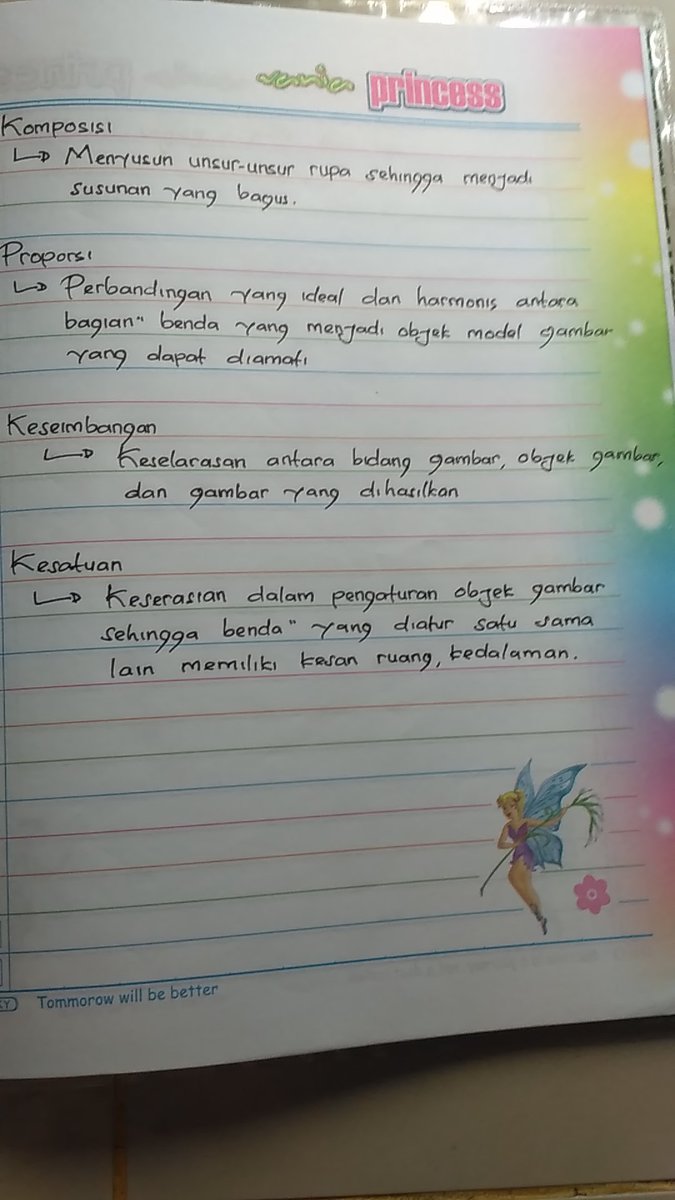 vania princess
Komposisi
↳ Menyusun unsur-unsur rupa sehingga menjadi
susunan yang bagus.
Proporsi
↳ Perbandingan yang ideal dan harmonis antara
bagian" benda yang menjadi objek model gambar
yang dapat diamati
Keseimbangan
↳ Keselarasan antara bidang gambar, objek gambar,
dan gambar yang dihasilkan
Kesatuan
↳ Keserasian dalam pengaturan objek gambar
sehingga benda" yang diatur satu sama
lain memiliki kesan ruang, kedalaman.
Tommorow will be better